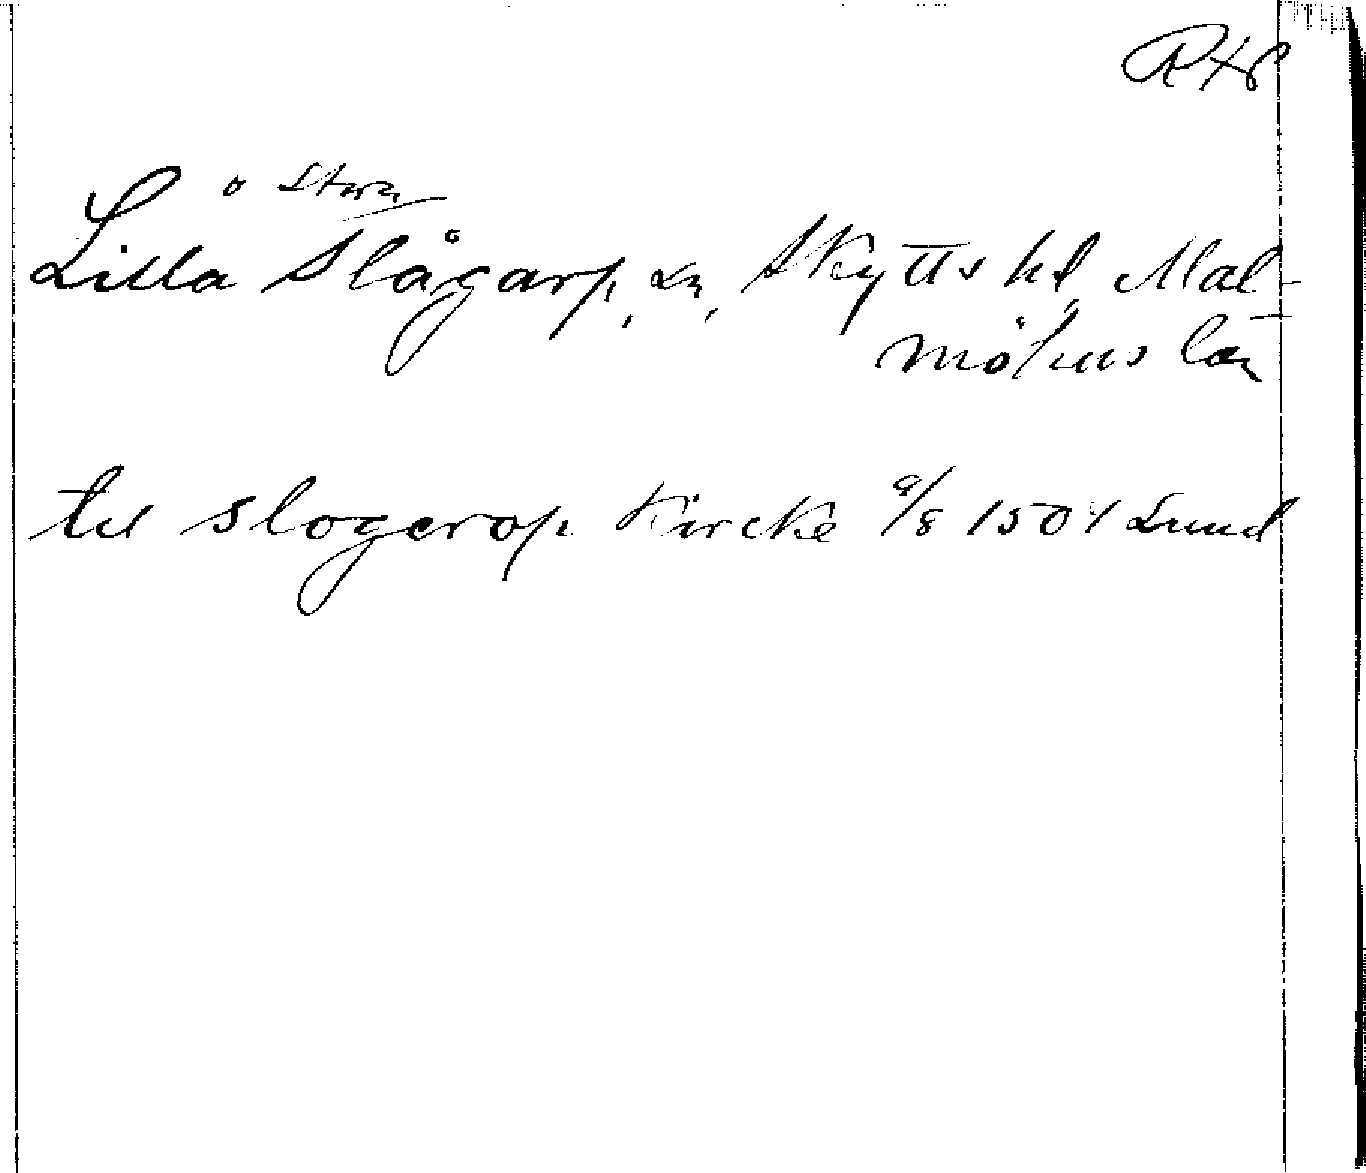 o Stora
Lilla Slågarp, sn, Skytts hd, Mal-
möhus län
til slogerop kircke 9/8 1504 Lund